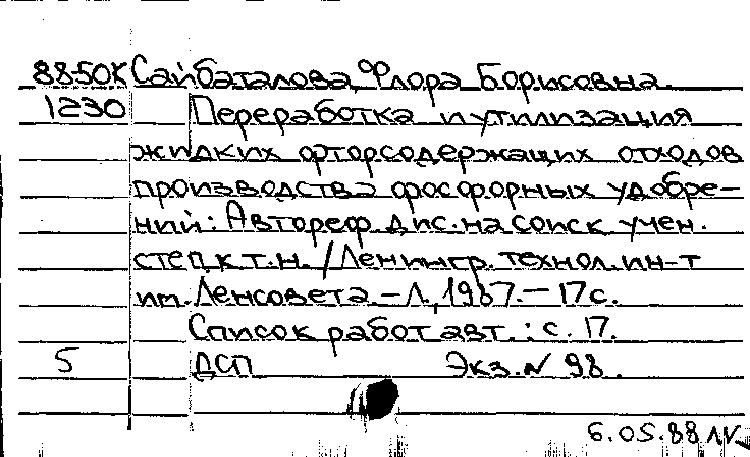 88-50К Сайбаталова, Флора Борисовна.
1230 Переработка и утилизация
жидких фторсодержащих отходов
производства фосфорных удобре-
ний: Автореф. дис. на соиск. учен.
степ. к.т.н. / Ленингр. технол. ин-т
им. Ленсовета. – Л., 1987. – 17 с.
Список работ авт.: с. 17.
5 ДСП Экз. № 98.
6.05.88